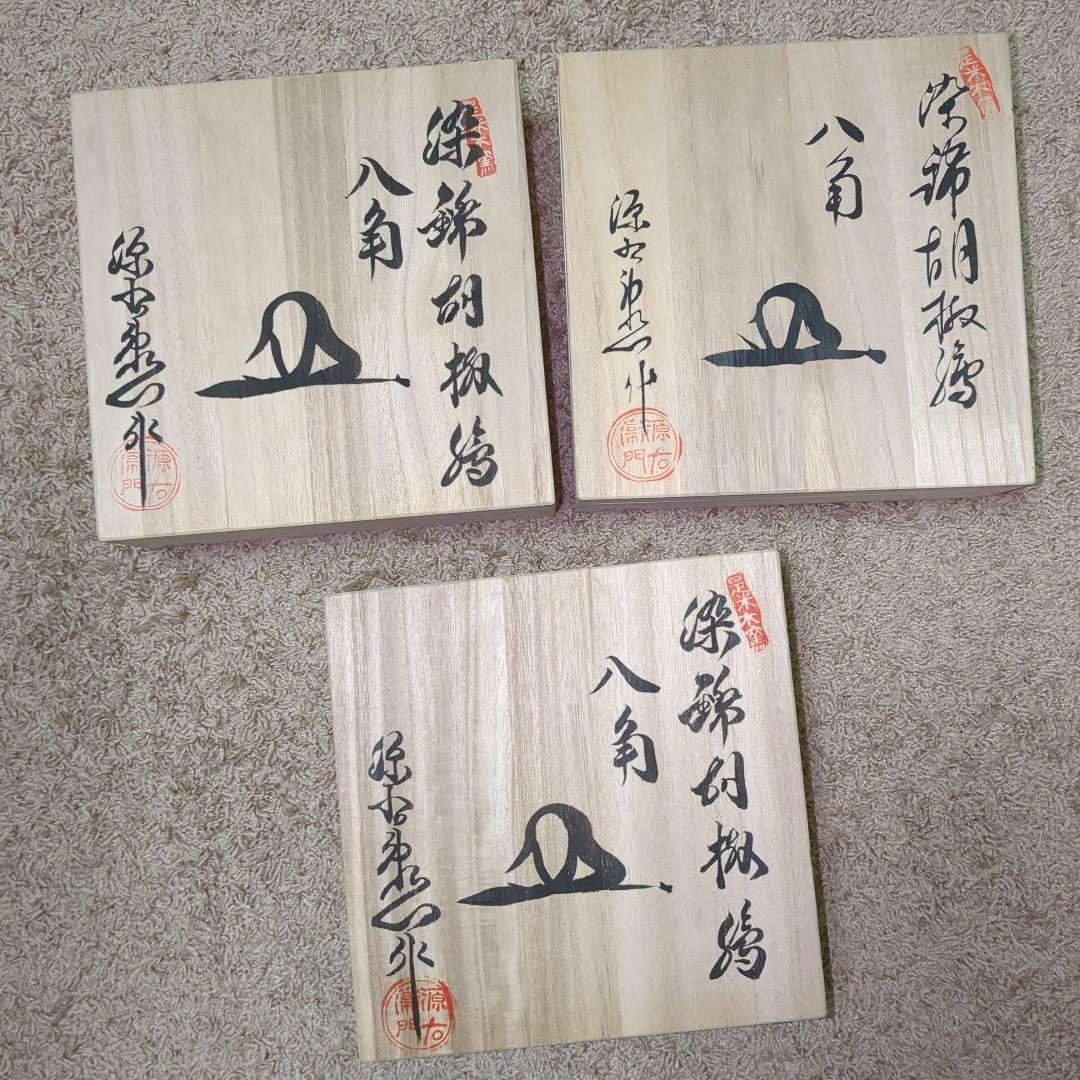 是米木窯
染錦胡椒
八角
皿
源右衛門作
源右衛門
是米木窯
染錦胡椒
八角
皿
源右衛門作
源右衛門
是米木窯
染錦胡椒
八角
皿
源右衛門作
源右衛門